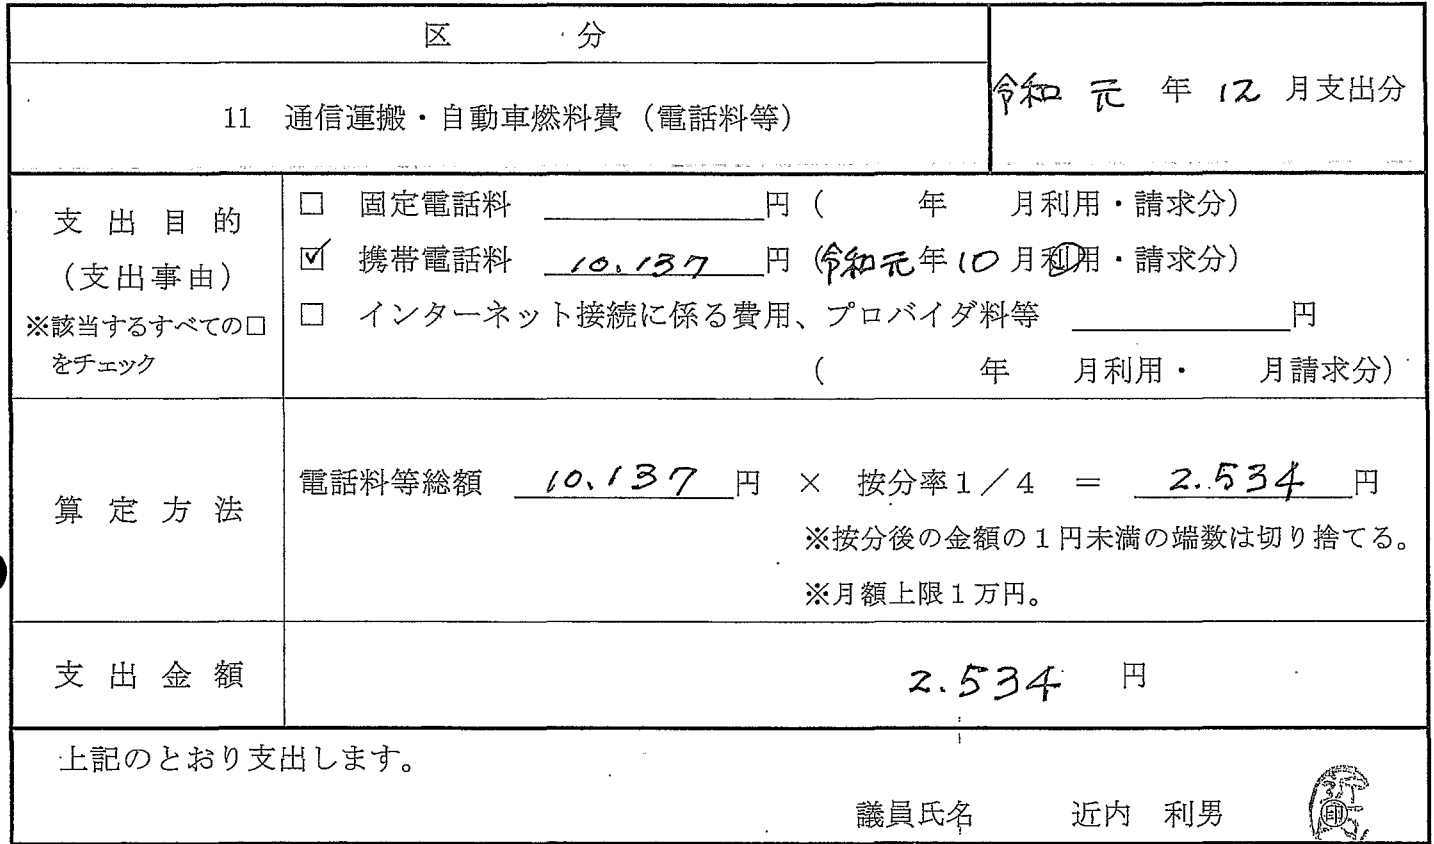 区 分
11 通信運搬・自動車燃料費（電話料等）
令和 元 年 12 月支出分
支出目的
（支出事由）
※該当するすべての□
をチェック
□ 固定電話料 ＿＿＿＿＿＿円（ 年 月利用・請求分）
☑ 携帯電話料 10.137 円（令和元年10月利用・請求分）
□ インターネット接続に係る費用、プロバイダ料等 ＿＿＿＿＿＿円
（ 年 月利用・ 月請求分）
算定方法
電話料等総額 10.137 円 × 按分率１／４ ＝ 2.534 円
※按分後の金額の１円未満の端数は切り捨てる。
※月額上限１万円。
支出金額
2.534 円
上記のとおり支出します。
議員氏名 近内 利男 印